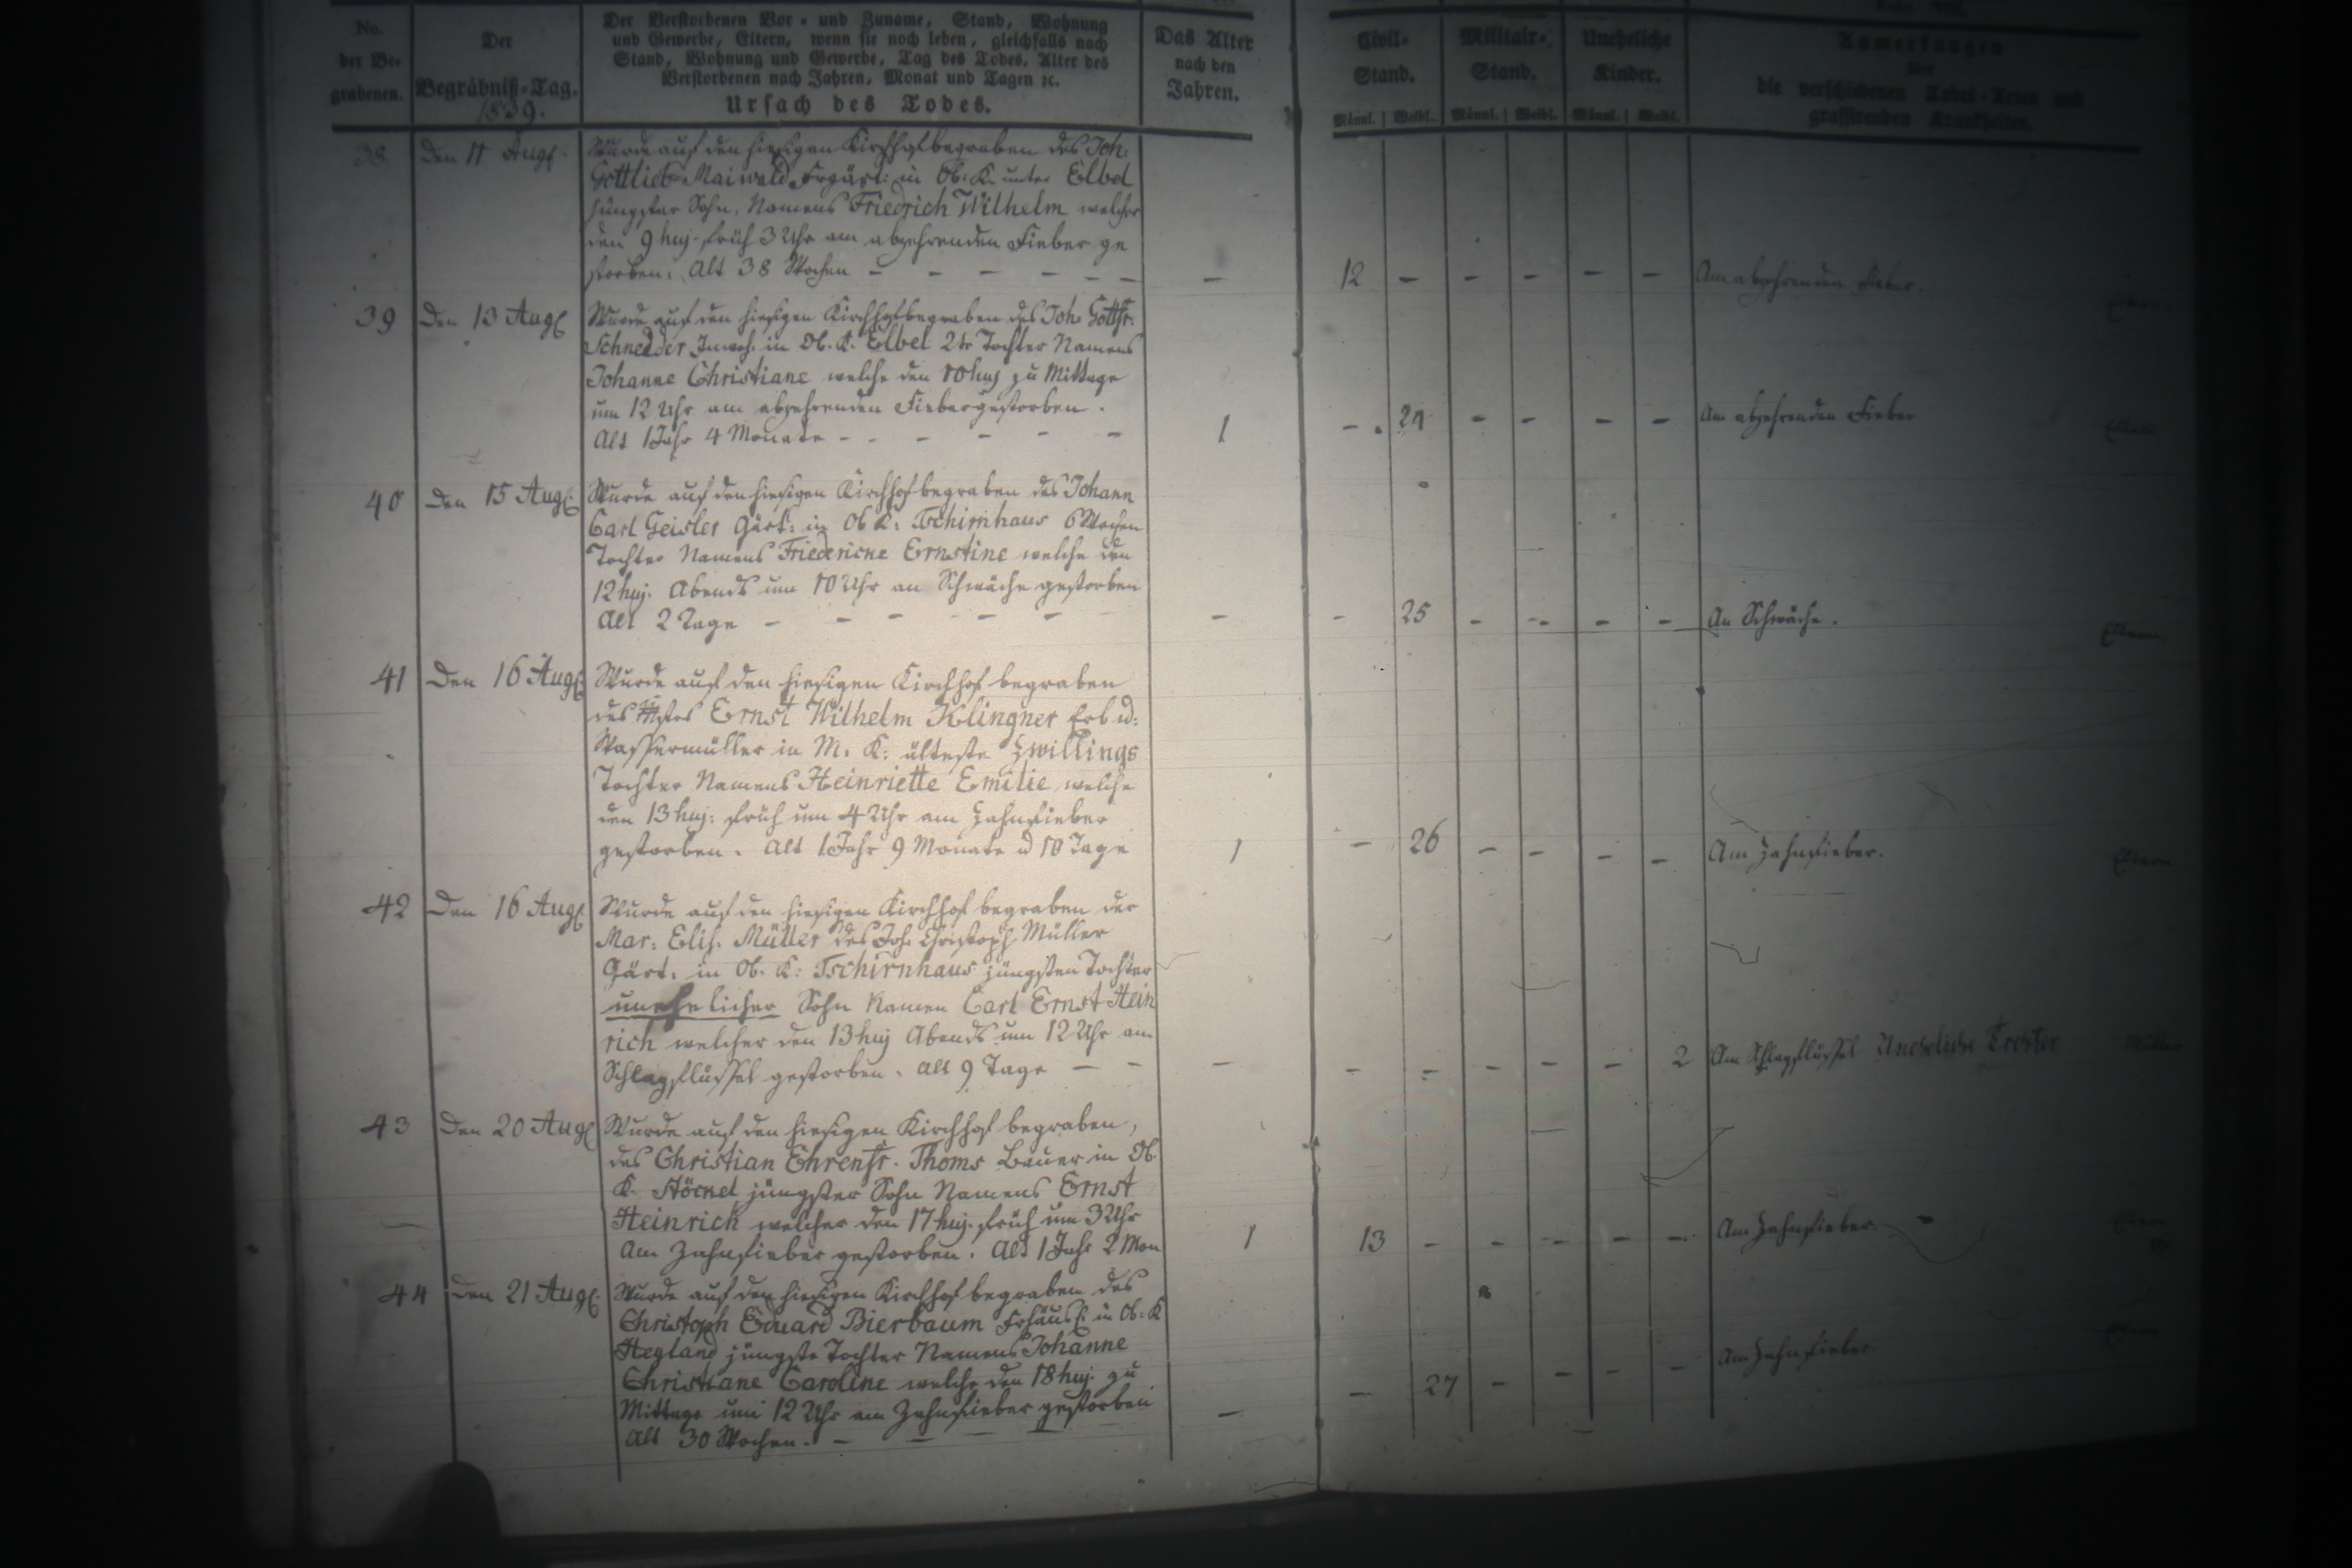 No.
der Be-
grabenen.
Der
Begräbniß-Tag.
1839.
Der Verstorbenen Vor- und Zuname, Stand, Wohnung
und Gewerbe, Eltern, wenn sie noch leben, gleichfalls nach
Stand, Wohnung und Gewerbe, Tag des Todes, Alter des
Verstorbenen nach Jahren, Monat und Tagen ꝛc.
Ursach des Todes.
Das Alter
nach den
Jahren.
Civil-
Stand.
Militair-
Stand.
Uneheliche
Kinder.
Anmerkungen
über
die verschiedenen Todes-Arten und
grassirenden Krankheiten.
Männl. Weibl. Männl. Weibl. Männl. Weibl.
38 Den 11 Aug.
Wurde auf den hiesigen Kirchhof begraben des Joh:
Gottlieb Maiwald Frgärt: in Ob: K. unter Elbel
jüngster Sohn, Namens Friedrich Wilhelm welcher
den 9 huj. früh 3 Uhr am abzehrenden Fieber ge
storben. Alt 38 Wochen – – – – – – – 12 – – – – – Am abzehrenden Fieber.
39 Den 13 Aug
Wurde auf den hiesigen Kirchhof begraben des Joh Gottfr.
Schneider Inwoh. in Ob. K. Elbel 2te Tochter Namens
Johanne Christiane welche den 10 huj zu Mittage
um 12 Uhr am abzehrenden Fieber gestorben.
Alt 1 Jahr 4 Monate – – – – – – 1 – 24 – – – – Am abzehrenden Fieber
40 Den 15 Aug
Wurde auf den hiesigen Kirchhof begraben des Johann
Carl Geisler Gärt: in Ob K: Tschirnhaus 6 Wochen
Tochter Namens Friedericke Ernstine welche den
12 huj. Abends um 10 Uhr an Schwäche gestorben
Alt 2 Tage – – – – – – – 25 – – – – An Schwäche. Eltern
41 Den 16 Aug
Wurde auf den hiesigen Kirchhof begraben
des Ernst Wilhelm Klingner Erb u:
Wassermüller in M. K: älteste Zwillings
Tochter Namens Heinriette Emilie welche
den 13 huj: früh um 4 Uhr am Zahnfieber
gestorben. Alt 1 Jahr 9 Monate u 10 Tage 1 – 26 – – – – Am Zahnfieber. Eltern
42 Den 16 Aug
Wurde auf den hiesigen Kirchhof begraben der
Mar: Elis. Müller des Joh. Christoph Müller
Gärt. in Ob. K: Tschirnhaus jüngsten Tochter
unehelicher Sohn Namen Carl Ernst Hein
rich welcher den 13 huj Abends um 12 Uhr am
Schlagflüssel gestorben. Alt 9 Tage – – – – – – – – 2 Am Schlagflüssel Uneheliche Tochter Müller
43 Den 20 Aug
Wurde auf den hiesigen Kirchhof begraben,
des Christian Ehrenfr. Thoms Bauer in Ob
K. Stöckel jüngster Sohn Namens Ernst
Heinrich welcher den 17 huj. früh um 3 Uhr
Am Zahnfieber gestorben. Alt 1 Jahr 2 Mon 1 13 – – – – – Am Zahnfieber.
44 Den 21 Aug.
Wurde auf den hiesigen Kirchhof begraben des
Christoph Eduard Bierbaum Frhäusl. in Ob: K
Heyland jüngste Tochter Namens Johanne
Christiane Caroline welche den 18 huj. zu
Mittage um 12 Uhr am Zahnfieber gestorben
Alt 30 Wochen. – – – – – 27 – – – – Am Zahnfieber.